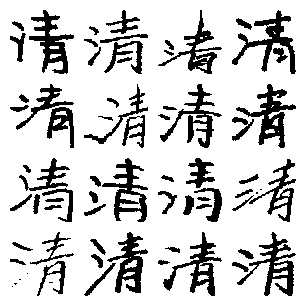 清清渚清
清清清清
清清清清
清清清清